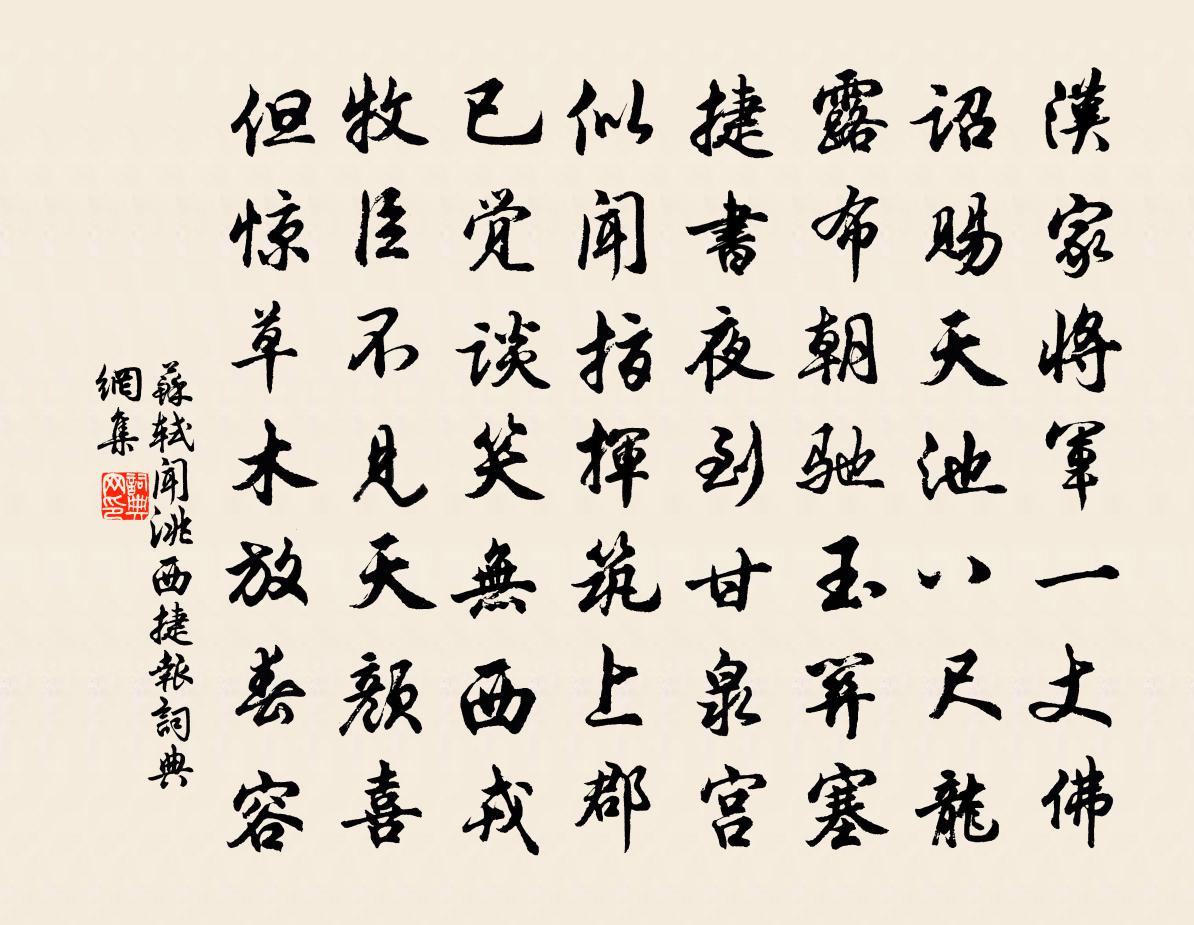 漢家将軍一丈佛
詔賜天池八尺龍
露布朝馳玉關塞
捷書夜到甘泉宫
似聞指揮筑上郡
已觉談笑無西戎
牧臣不見天顔喜
但惊草木放春容
蘇軾聞洮西捷報詞典
網集
詞典网印